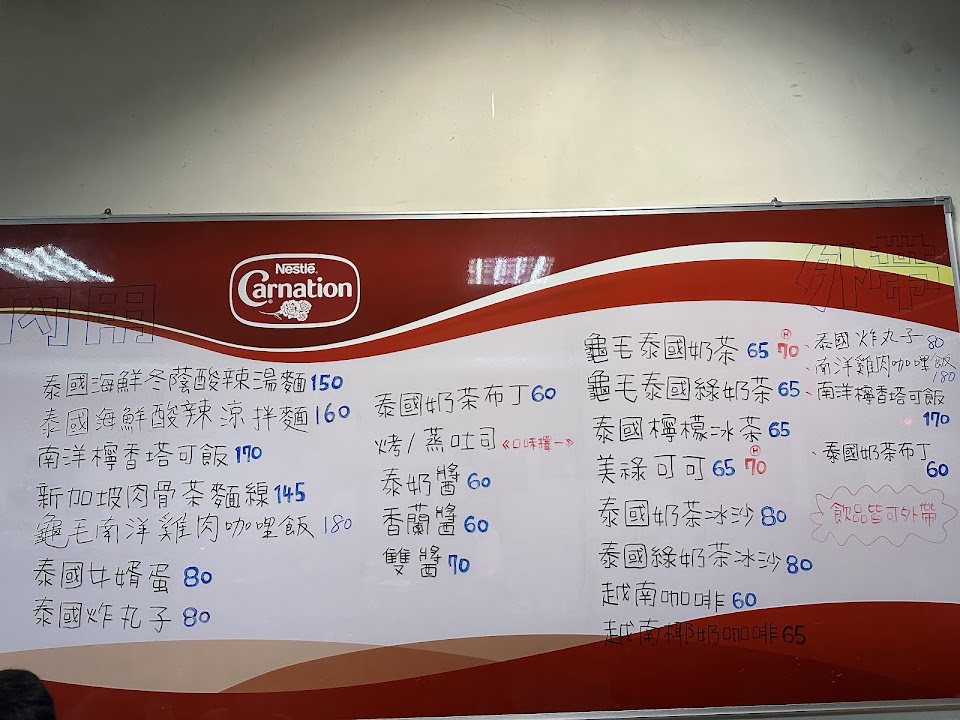 Nestlé
Carnation
內用
泰國海鮮冬蔭酸辣湯麵 150
泰國海鮮酸辣涼拌麵 160
南洋檸香塔可飯 170
新加坡肉骨茶麵線 145
龜毛南洋雞肉咖哩飯 180
泰國女婿蛋 80
泰國炸丸子 80
泰國奶茶布丁 60
烤/蒸吐司 《口味擇一》
泰奶醬 60
香蘭醬 60
雙醬 70
龜毛泰國奶茶 65 Ⓗ70
龜毛泰國綠奶茶 65
泰國檸檬冰茶 65
美祿可可 65 Ⓗ70
泰國奶茶冰沙 80
泰國綠奶茶冰沙 80
越南咖啡 60
越南椰奶咖啡 65
外帶
、泰國炸丸子 80
、南洋雞肉咖哩飯
180
、南洋檸香塔可飯
170
、泰國奶茶布丁
60
飲品皆可外帶